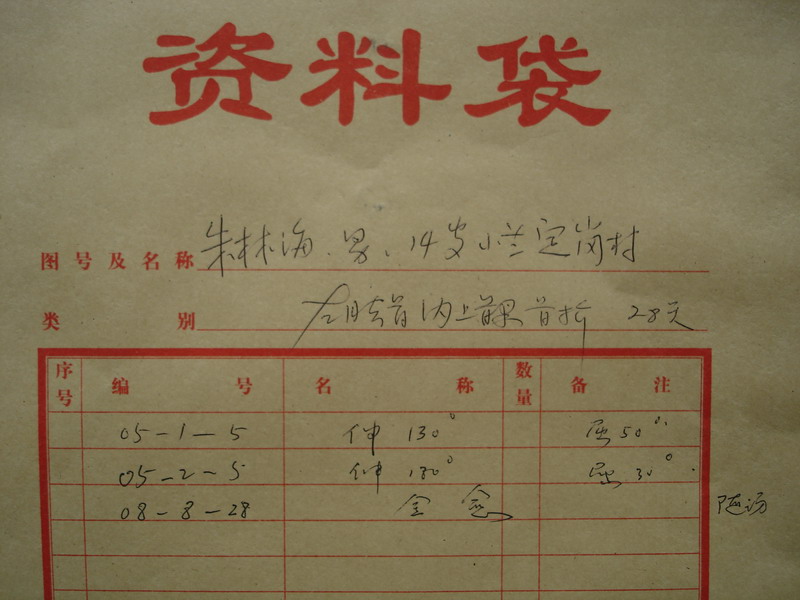 资料袋
图号及名称 朱林海、男、14岁小兰定岗村
类别 左肱骨内上髁骨折 28天
序号 编号 名称 数量 备注
05-1-5 伸 130° 屈 50°
05-2-5 伸 180° 屈 30°
08-8-28 全愈 随访